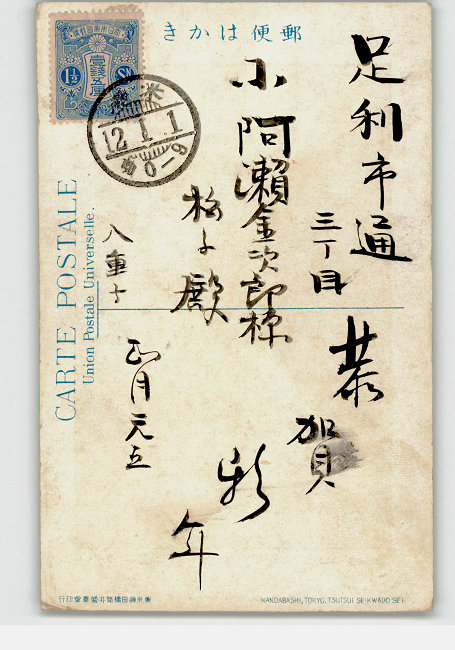 郵便はかき
足利市通
三丁目
小阿瀬金次郎様
梅子殿
八重子
恭賀
新年
正月元旦
1½ Sn
12.1.1
0-9
CARTE POSTALE
Union Postale Universelle.
東京神田橋筒井聖華堂印行
KANDABASHI, TOKYO, TSUTSUI SEIKWADO SEI